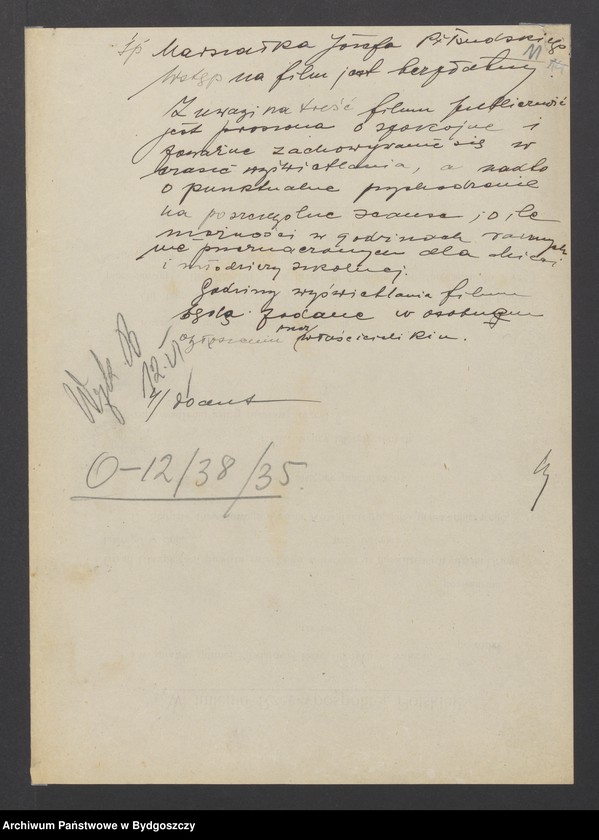 śp Marszałka Józefa Piłsudskiego.
11
Wstęp na film jest bezpłatny.
Z uwagi na treść filmu publiczność
jest proszona o spokojne i
poważne zachowywanie się w
czasie wyświetlania, a nadto
o punktualne przychodzenie
na poszczególne seanse, o ile
możności w godzinach
nie przeznaczonych dla dzieci
i młodzieży szkolnej.
Godziny wyświetlania filmu
będą podane w osobnym
ogłoszeniu właścicieli kin.
12.VI
O-12/38/35.
Archiwum Państwowe w Bydgoszczy